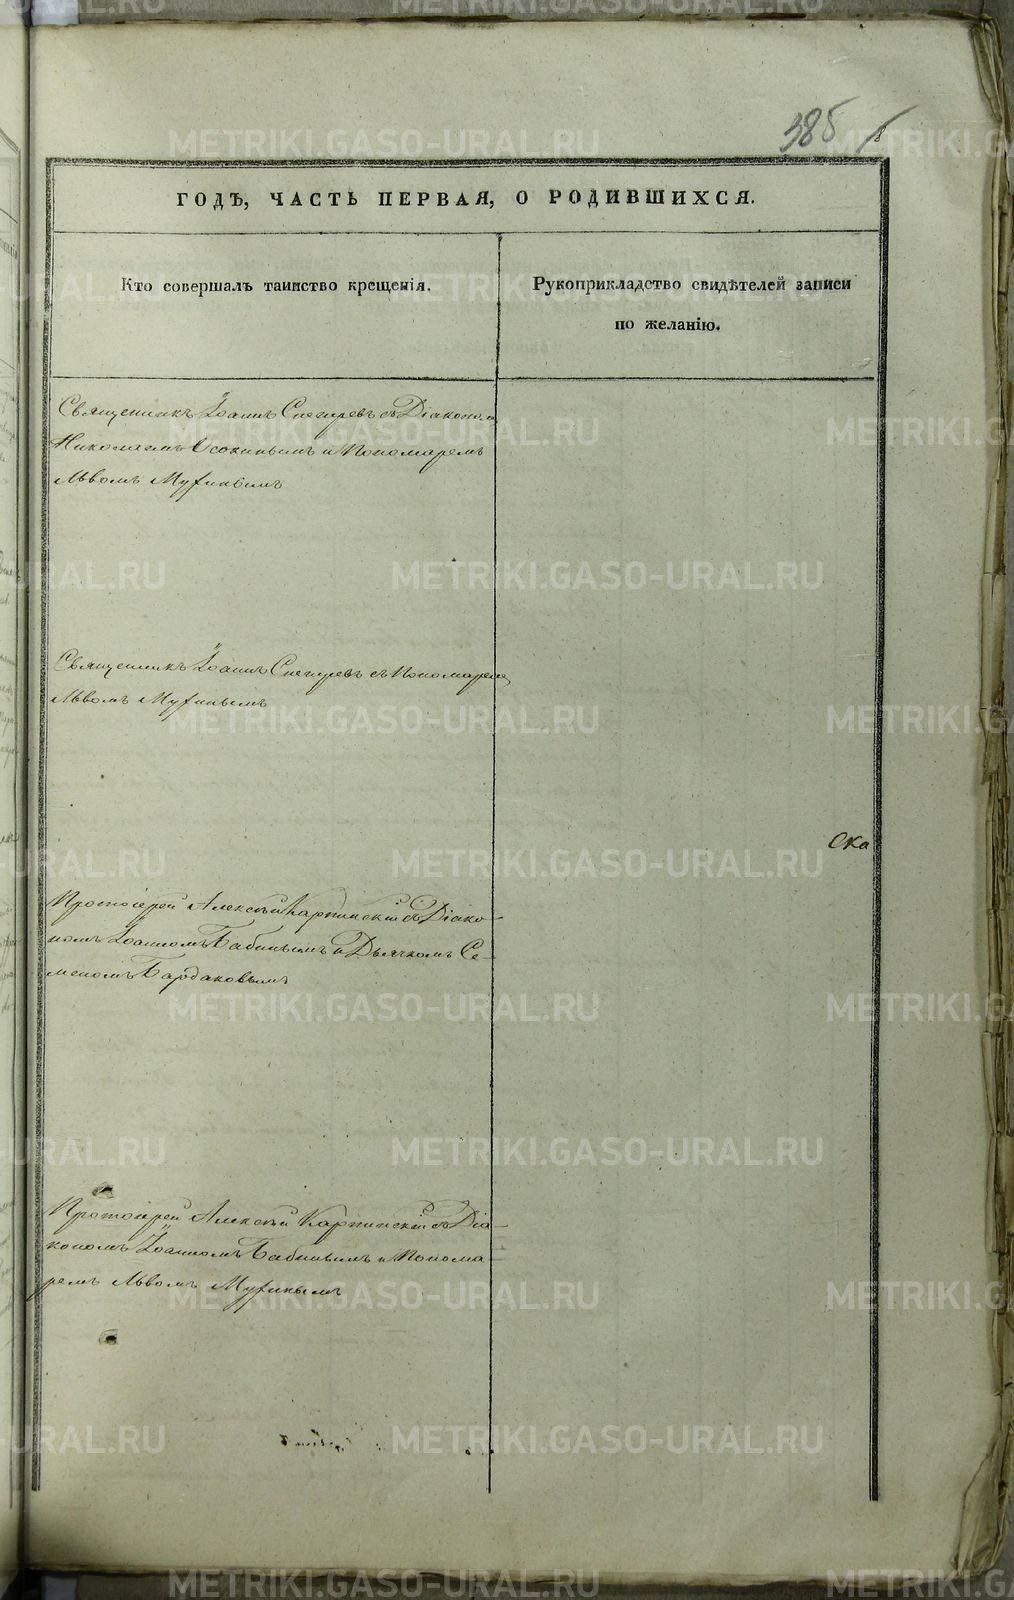 385
8
ГОДЪ, ЧАСТЬ ПЕРВАЯ, О РОДИВШИХСЯ.
Кто совершалъ таинство крещенія.
Рукоприкладство свидѣтелей записи
по желанію.
Священникъ Іоаннъ Снегиревъ съ Діакономъ
Николаемъ Осокинымъ и Пономаремъ
Львомъ Мухинымъ
Священникъ Іоаннъ Снегиревъ съ Пономаремъ
Львомъ Мухинымъ
Ска
Протоіерей Алексѣй Карпинскій съ Діако-
номъ Іоанномъ Бабинымъ и Дьячкомъ Се-
меномъ Бардаковымъ
Протоіерей Алексѣй Карпинскій съ Діа-
кономъ Іоанномъ Бабинымъ и Понома-
ремъ Львомъ Мухинымъ
METRIKI.GASO-URAL.RU